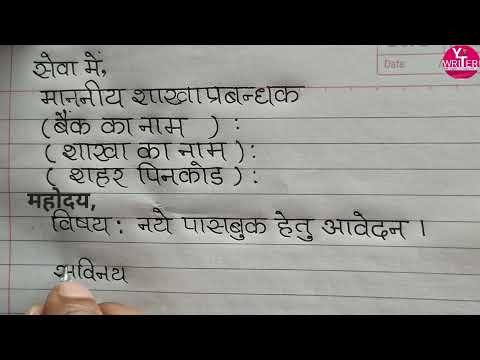 YT
WRITER
Date:
सेवा में,
माननीय शाखाप्रबन्धक
(बैंक का नाम ) :
( शाखा का नाम ) :
( शहर पिनकोड ) :
महोदय,
विषय : नये पासबुक हेतु आवेदन ।
सविनय